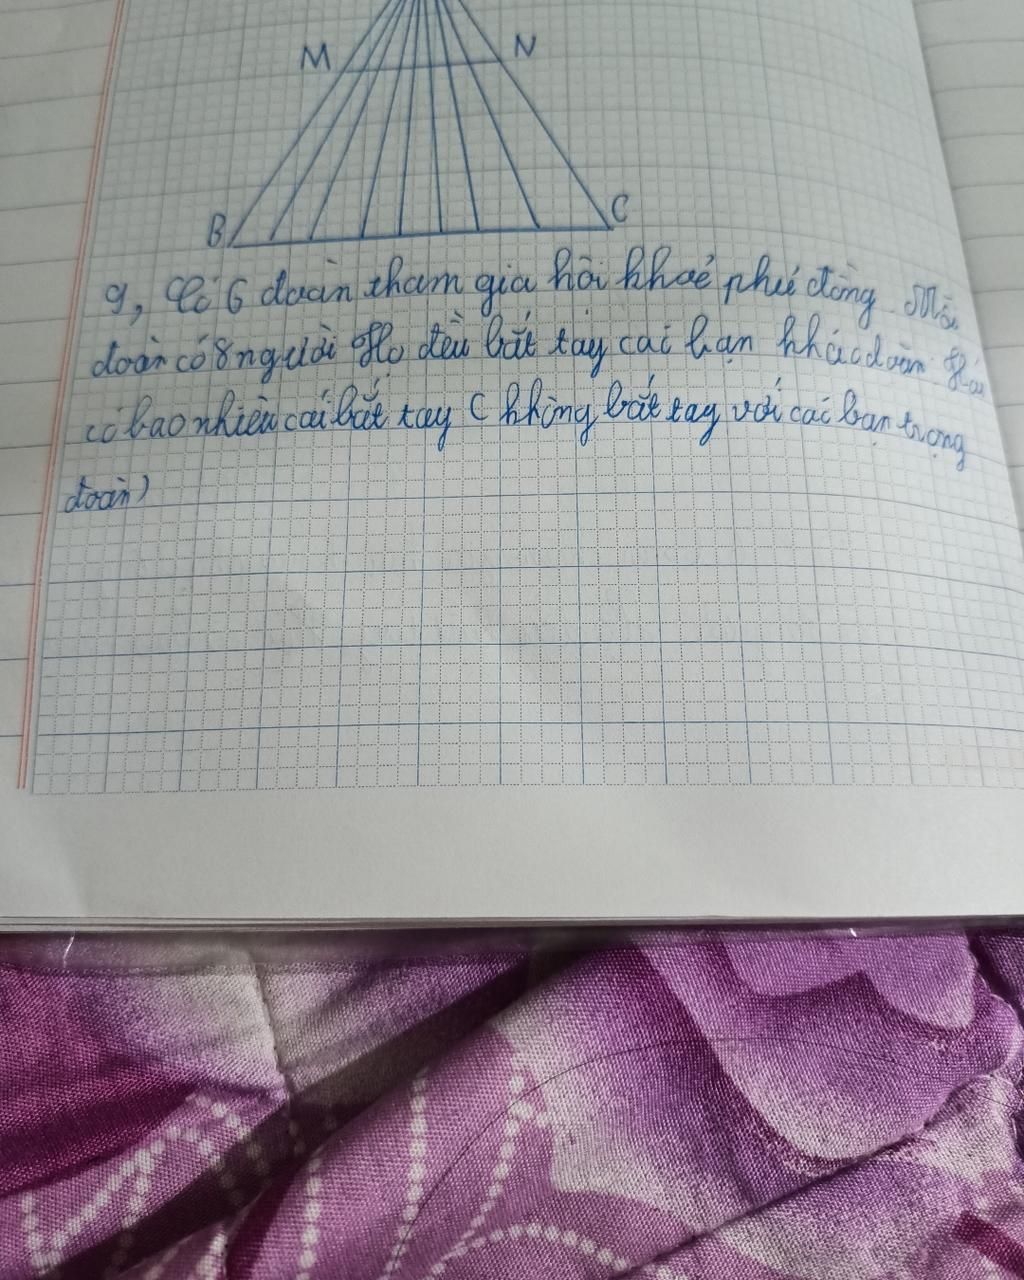 M N
B C
9, Có 6 đoàn tham gia hội khoẻ phù đổng. Mỗi
đoàn có 8 người Họ đều bắt tay các bạn khác đoàn. Hỏi
có bao nhiêu cái bắt tay ( không bắt tay với các bạn trong
đoàn)